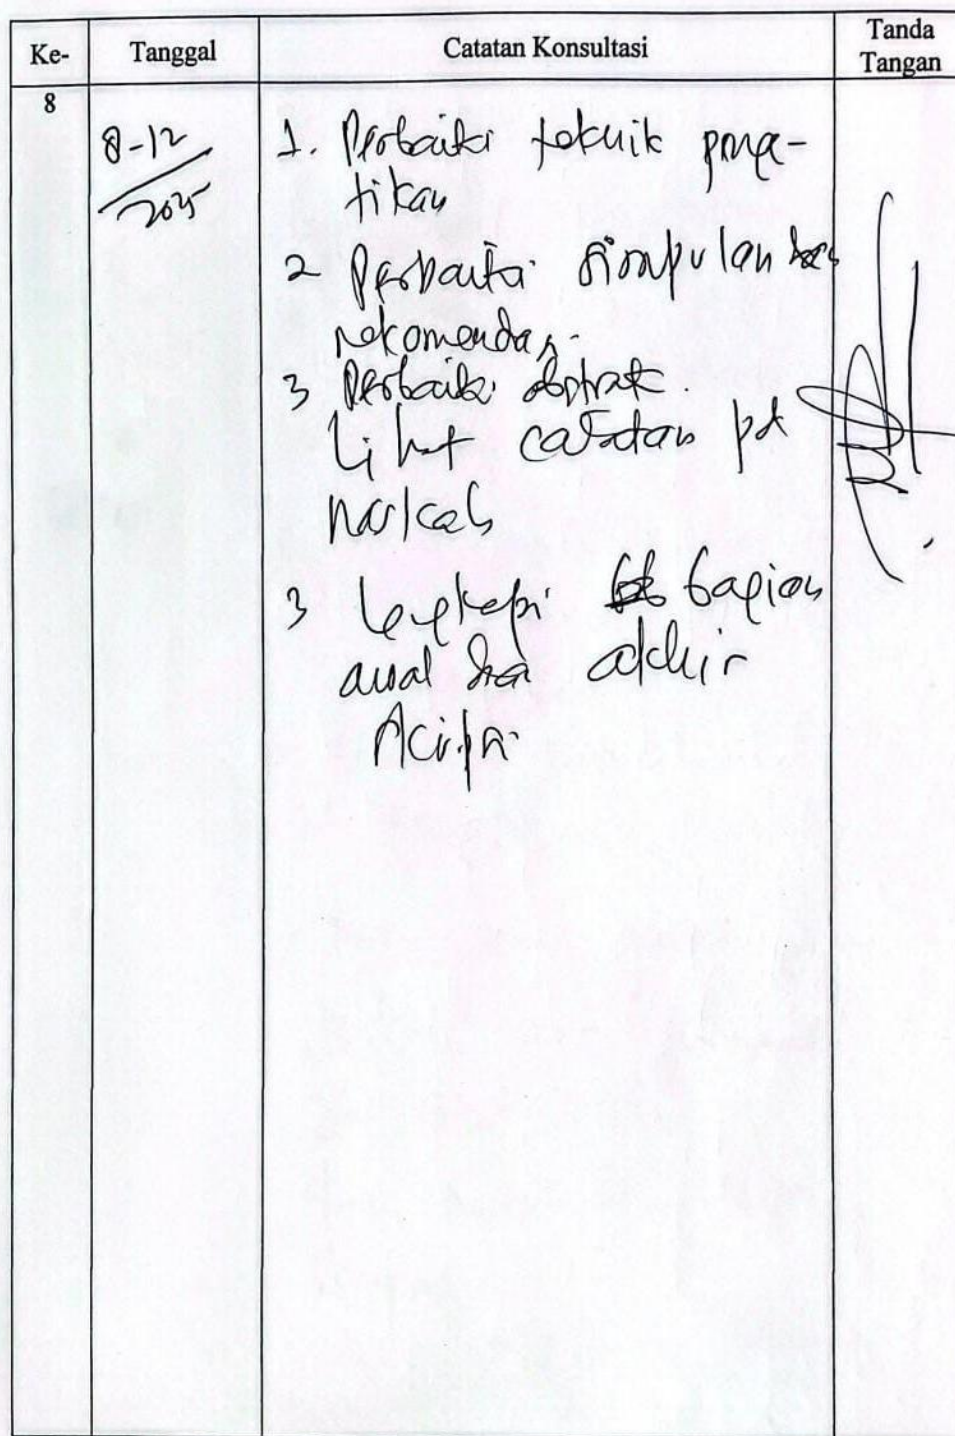 Ke- Tanggal Catatan Konsultasi Tanda Tangan
8
8-12
2025
1. Perbaiki teknik penge-
tikan
2 Perbaiki simpulan dan
rekomendasi
3 Perbaiki abstrak.
Lihat catatan pd
naskah
3 Lengkapi bagian
awal dan akhir